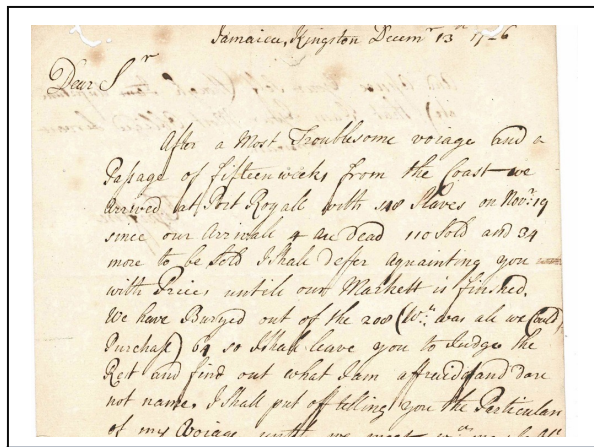 Jamaica, Kingston Decemr 13th 1726
Dear Sr
After a Most Troublesome voiage and a
Passage of fifteen weeks from the Coast we
arived at Port Royall with 148 Slaves on Novr: 19
since our Arrivall 4 are Dead 110 Sold and 34
more to be Sold I Shall defer aquainting you
with Prices untill our Markett is finshed.
We have Buryed out of the 208 (Wch was all we Could
Purchase) so I Shall leave you to Judge the
Rest and find out what I am affraid and dare
not name, I Shall put off telling you the Particulars
of my Voiage untill we meet